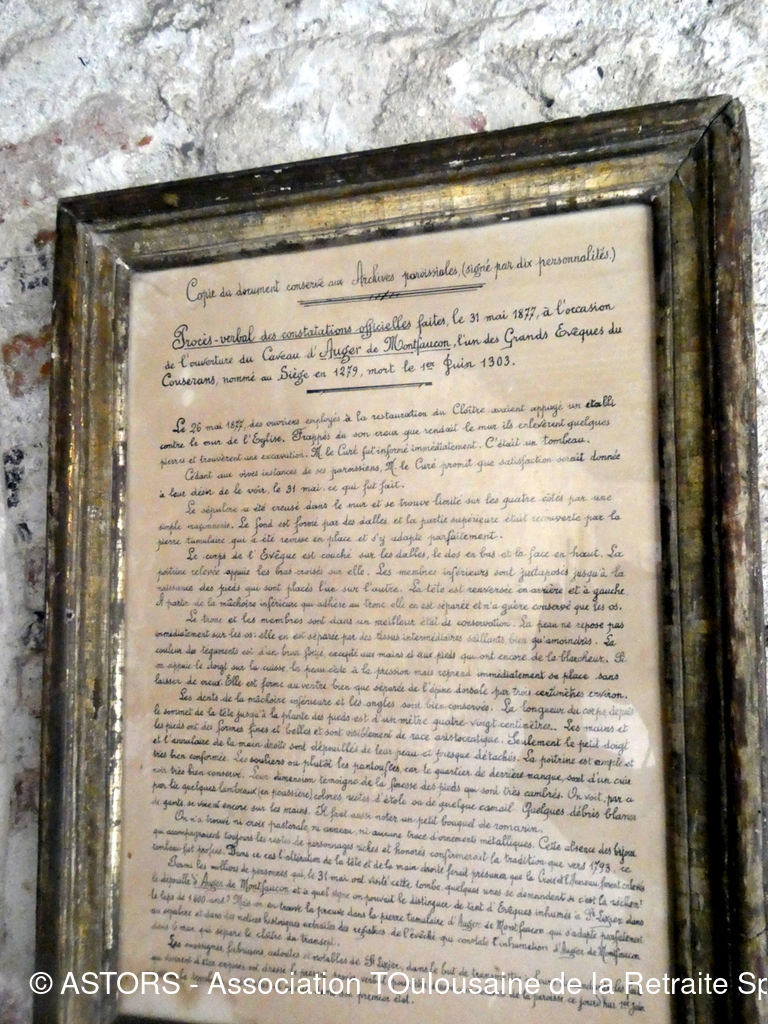 Copie du document conservé aux Archives paroissiales, (signé par dix personnalités.)
Procès-verbal des constatations officielles faites, le 31 mai 1877, à l'occasion
de l'ouverture du Caveau d'Auger de Montfaucon, l'un des Grands Evêques du
Couserans, nommé au Siège en 1279, mort le 1er Juin 1303.
Le 26 mai 1877, des ouvriers employés à la restauration du Cloître avaient appuyé un etabli
contre le mur de l'Eglise. Frappés du son creux que rendait le mur ils enlevèrent quelques
pierres et trouvèrent une excavation. M. le Curé fut informé immédiatement. C'était un tombeau.
Cédant aux vives instances de ses paroissiens, M. le Curé promit que satisfaction serait donnée
à leur désir de le voir, le 31 mai. ce qui fut fait.
Le sépulcre a été creusé dans le mur et se trouve limité sur les quatre côtés par une
simple maçonnerie. Le fond est formé par des dalles, et la partie supérieure était recouverte par la
pierre tumulaire qui a été remise en place et s'y adapte parfaitement.
Le corps de l'Evêque est couché sur les dalles, le dos en bas et la face en haut. La
poitrine relevée appuie les bras croisés sur elle. Les membres inférieurs sont juxtaposés jusqu'à la
naissance des pieds qui sont placés l'un sur l'autre. La tête est renversée en arrière et à gauche.
A partir de la mâchoire inférieure qui adhère au tronc elle en est séparée et n'a guère conservé que les os.
Le tronc et les membres sont dans un meilleur état de conservation. La peau ne repose pas
immédiatement sur les os: elle en est séparée par des tissus intermédiaires saillants bien qu'amoindris. La
couleur des téguments est d'un brun foncé excepté aux mains et aux pieds qui ont encore de la blancheur. Si
on appuie le doigt sur la cuisse la peau cède à la pression mais reprend immédiatement sa place sans
laisser de creux. Elle est ferme au ventre bien que séparée de l'épine dorsale par trois centimètres environ.
Les dents de la mâchoire inférieure et les ongles sont bien conservés. La longueur du corps depuis
le sommet de la tête jusqu'à la plante des pieds est d'un mètre quatre vingt centimètres.. Les mains et
les pieds ont des formes fines et belles et sont visiblement de race aristocratique. Seulement le petit doigt
et l'annulaire de la main droite sont dépouillés de leur peau et presque détachés. La poitrine est ample et
très bien conformée. Les souliers ou plutôt les pantoufles, car le quartier de derrière manque, sont d'un cuir
noir très bien conservé. Leur dimension témoigne de la finesse des pieds qui sont très cambrés. On voit, par ci
par là quelques lambeaux (en poussière) colorés restes d'étole ou de quelque camail. Quelques débris blancs
de gants, se voient encore sur les mains. Il faut aussi noter un petit bouquet de romarin.
On n'a trouvé ni croix pastorale, ni anneau, ni aucune trace d'ornements métalliques. Cette absence des bijoux
qui accompagnaient toujours les restes de personnages riches et honorés confirmerait la tradition que vers 1793, ce
tombeau fut profané. Dans ce cas l'altération de la tête et de la main droite ferait présumer que la Croix et l'Anneau furent enlevés
Parmi les milliers de personnes qui, le 31 mai ont visité cette tombe, quelques unes se demandent si c'est là réellement
la dépouille d'Auger de Montfaucon et à quel signe on pouvait le distinguer de tant d'Evêques inhumés à St Lizier dans
le laps de 1200 ans? Mais on en trouve la preuve dans la pierre tumulaire d'Auger de Montfaucon qui s'adapte parfaitement
au sépulcre et dans des notices historiques extraites des registres de l'évêché qui constate l'inhumation d'Auger de Montfaucon
dans le mur qui sépare le cloître du transept.
Les soussignés, fabriciens, autorités et notables de St Lizier, dans le but de
qui viennent d'être exposés ont dressé le présent procès verbal de la paroisse, ce jourd'hui 1er Juin
premier état.
© ASTORS - Association TOulousaine de la Retraite Sp